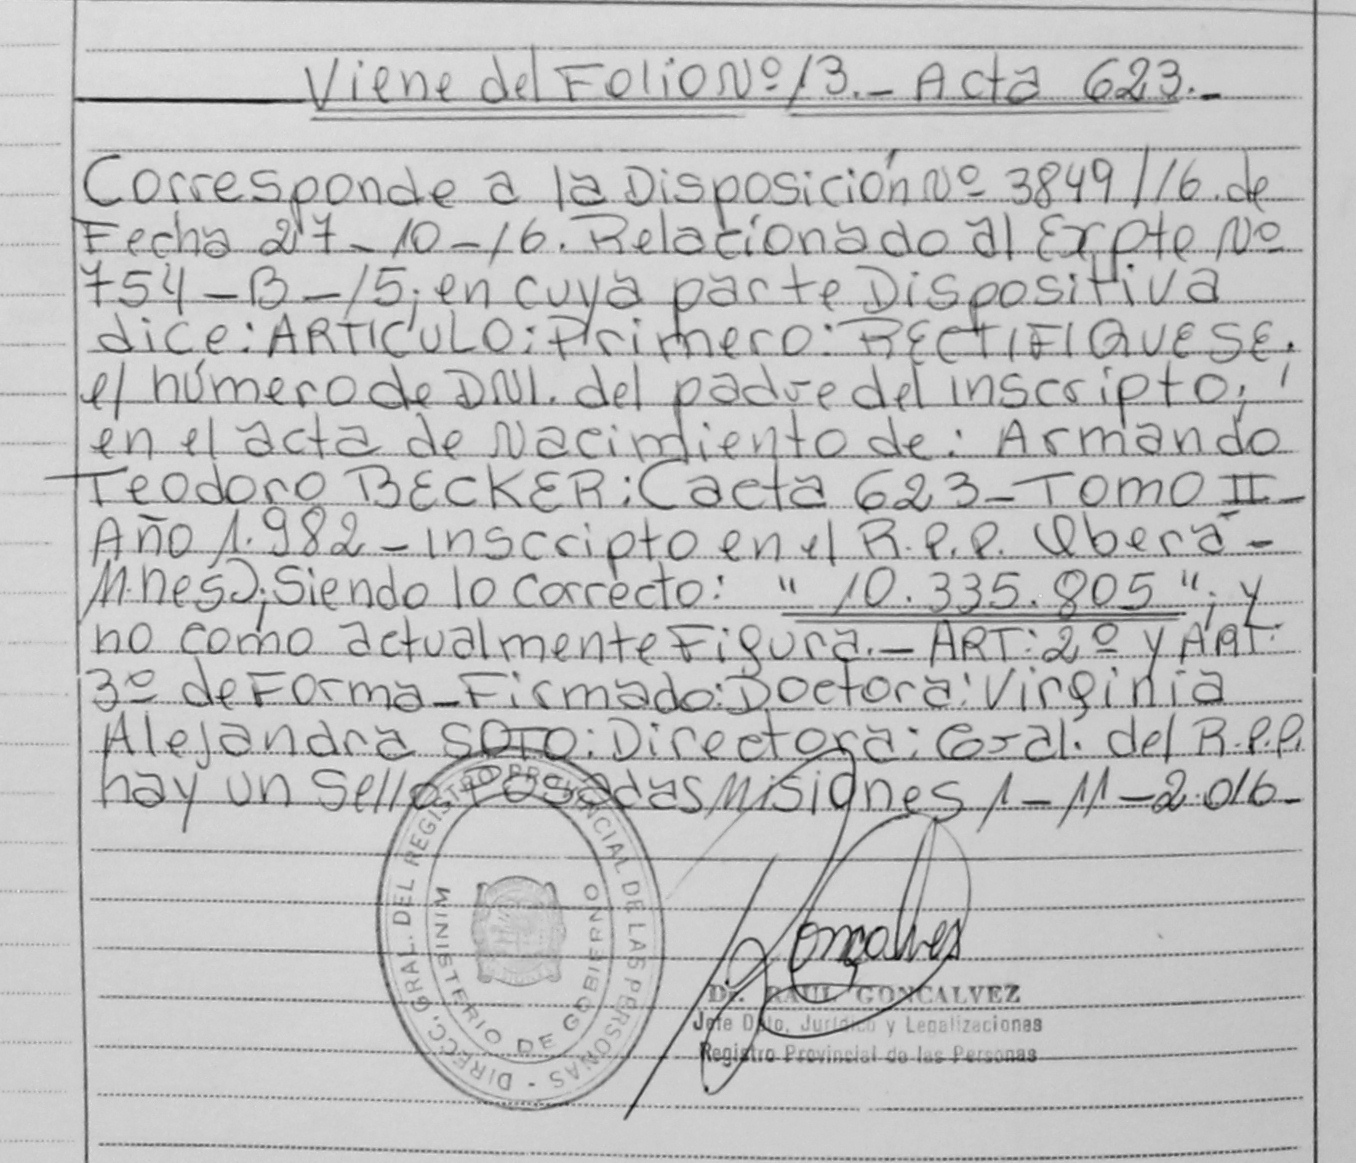 Viene del Folio Nº 13.- Acta 623.-
Corresponde a la Disposición Nº 3849/16. de
Fecha 27-10-16. Relacionado al Expte Nº
754-B-15; en cuya parte Dispositiva
dice: ARTICULO: Primero: RECTIFIQUESE.
el número de DNI. del padre del inscripto;
en el acta de Nacimiento de: Armando
Teodoro BECKER: (acta 623-Tomo II-
Año 1.982-inscripto en el R.P.P. Oberá-
M.nes); Siendo lo correcto: "10.335.805"; y
no como actualmente Figura.- ART: 2º y ART:
3º de Forma-Firmado: Doctora: Virginia
Alejandra SOTO: Directora: Gral. del R.P.P.
hay un Sello. Posadas Misiones 1-11-2.016-
DIRECC. GRAL. DEL REGISTRO PROVINCIAL DE LAS PERSONAS -
MINISTERIO DE GOBIERNO
Goncalves
Dr. RAUL GONCALVEZ
Jefe Dpto. Jurídico y Legalizaciones
Registro Provincial de las Personas